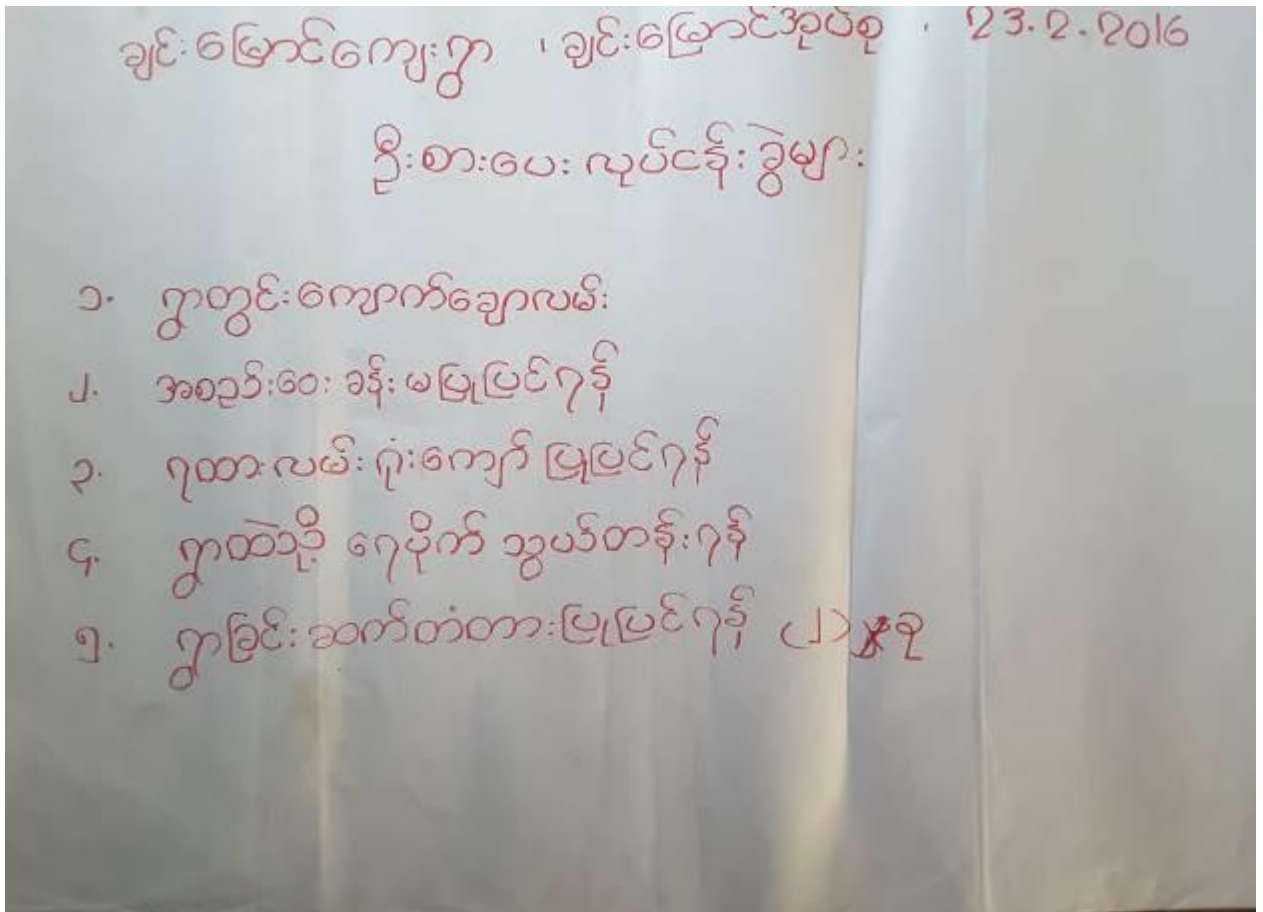 ချင်းမြောင်ကျေးရွာ ၊ ချင်းမြောင်အုပ်စု . 23.2.2016
ဦးစားပေး လုပ်ငန်းခွဲများ
၁. ရွာတွင်းကျောက်ချောလမ်း
၂. အစည်းဝေးခန်းမပြုပြင်ရန်
၃. ရထားလမ်းဂုံးကျော် ပြုပြင်ရန်
၄. ရွာထဲသို့ ရေပိုက် သွယ်တန်းရန်
၅. ရွာခြင်းဆက်တံတားပြုပြင်ရန် (၂) ခု